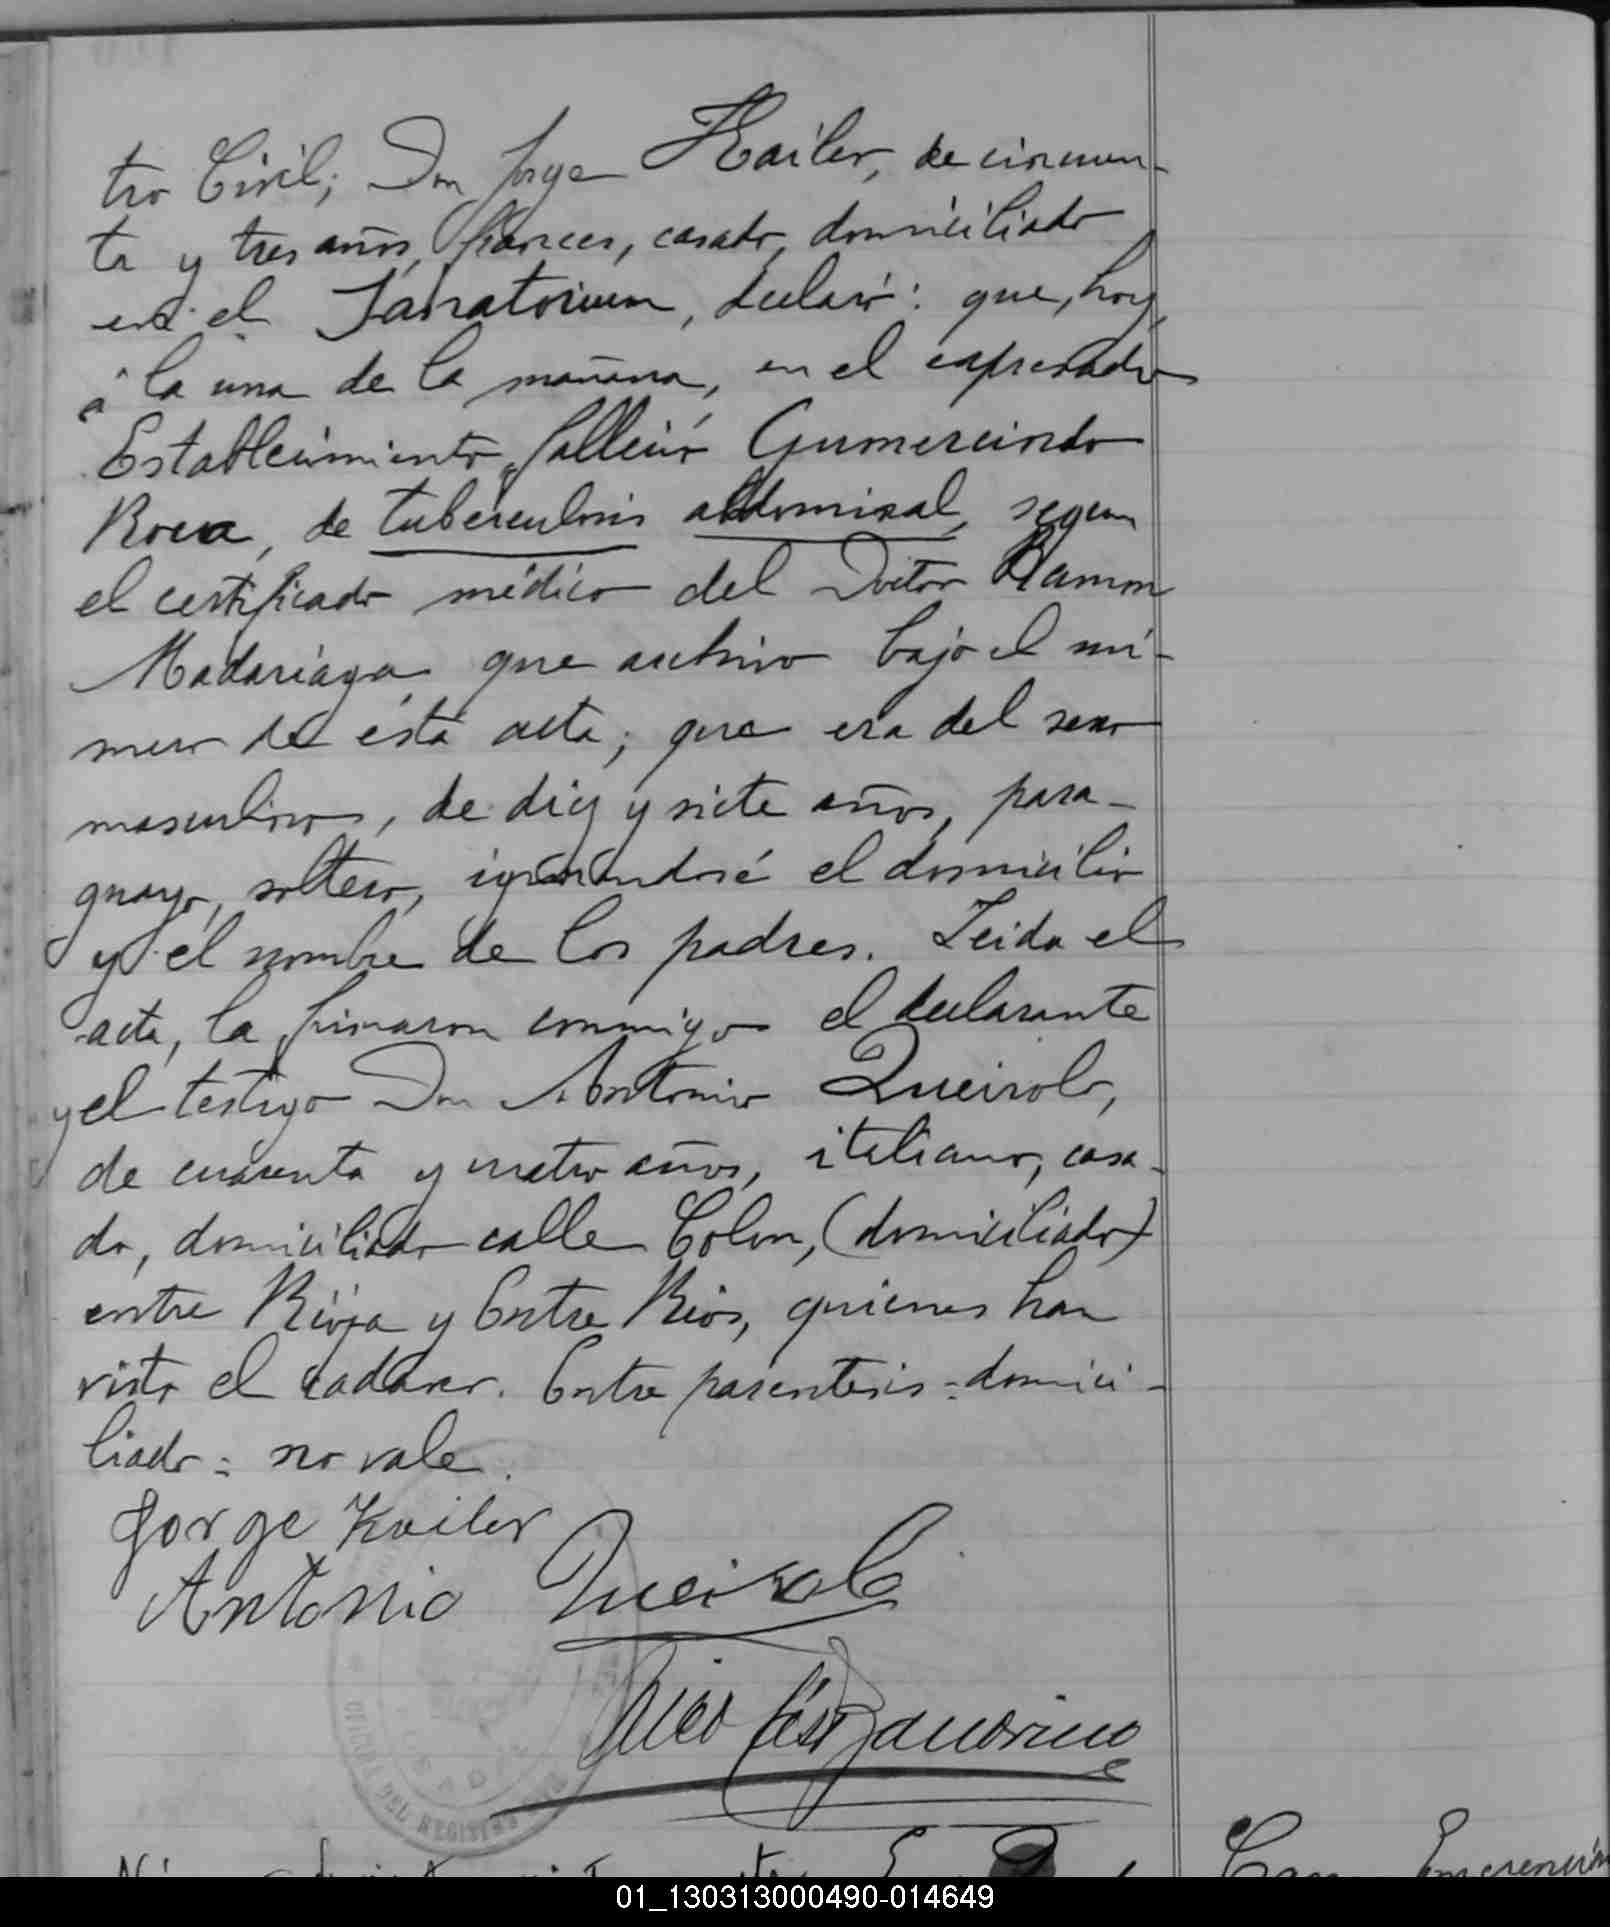 tro Civil; Don Jorge Kailer, de cincuen-
ta y tres años, frances, casado, domiciliado
en el Sanatorium, declaró: que, hoy,
á la una de la mañana, en el expresado
Establecimiento, falleció Gumercindo
Roca, de tuberculosis abdominal, segun
el certificado médico del Doctor Ramon
Madariaga que archivo bajo el nú-
mero de ésta acta; que era del sexo
masculino, de diez y siete años, para-
guayo, soltero, ignorándosé el domicilio
y el nombre de los padres. Leida el
acta, la firmaron conmigo el declarante
y el testigo Don Antonio Queirolo,
de cuarenta y cuatro años, italiano, casa-
do, domiciliado calle Colon, (domiciliado)
entre Rioja y Entre Rios, quienes han
visto el cadaver. Entre parentesis = domici-
liado = no vale.
Jorge Kailer
Antonio Queirolo
OFICINA DEL REGISTRO
01_130313000490-014649